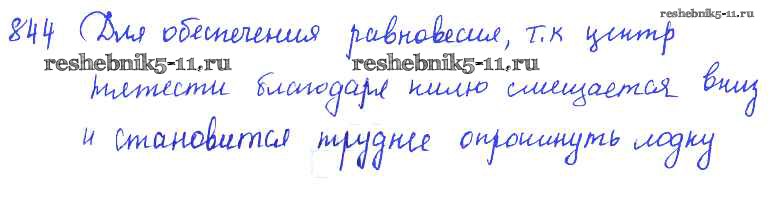 reshebnik5-11.ru
844 Для обеспечения равновесия, т.к центр
reshebnik5-11.ru reshebnik5-11.ru
тяжести благодаря килю смещается вниз
и становится труднее опрокинуть лодку